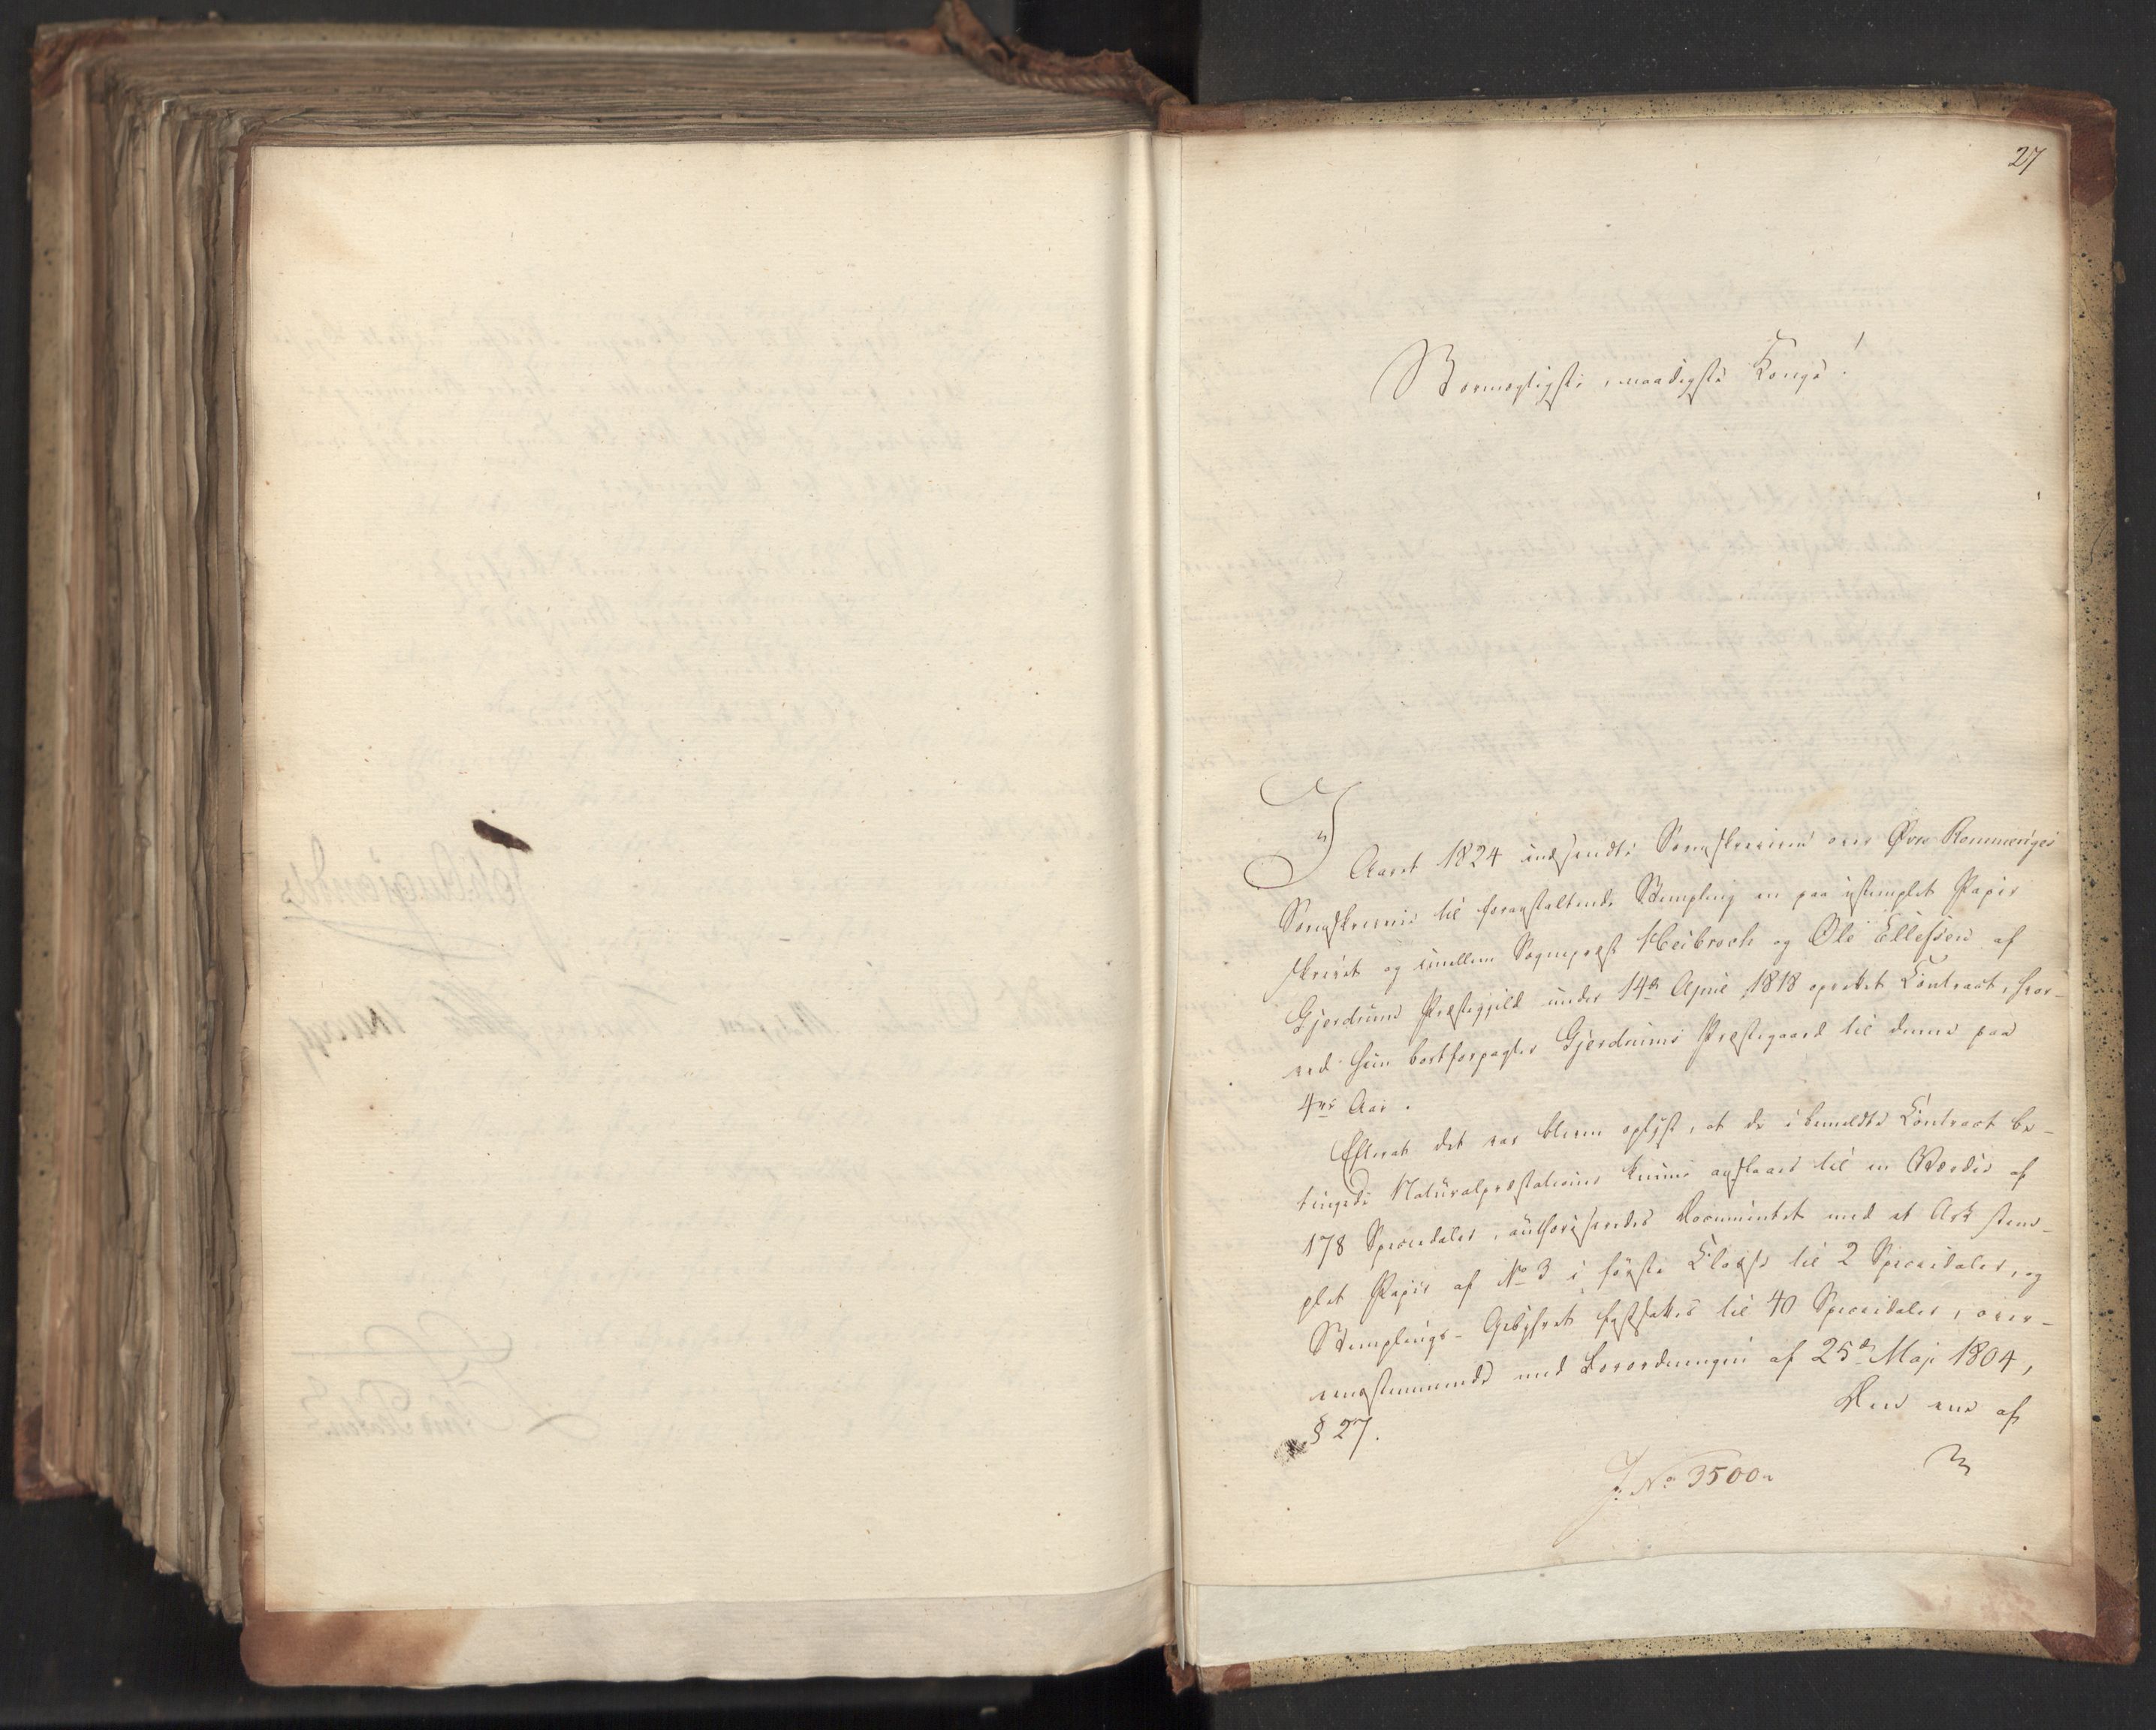 27
Stormægtigste, naadigste Konge!
I Aaret 1824 indsendte Sorenskriveren over Øvre Rommeriges
Sorenskriverie til foranstaltende Stempling en paa ustemplet Papir
skrevet og imellem Sognepræst Heibroch og Ole Ellefsen af
Gjerdrums Præstegjeld under 14de April 1818 oprettet Contract, hvor-
ved hiin bortforpagter Gjerdrums Præstegaard til denne paa
4re Aar.
Efterat det var bleven oplyst, at de i bemeldte Contract be-
tingede Naturalpræstationer kunne anslaaes til en Værdie af
178 Speciedaler, authoriseredes Documentet med et Ark stem-
plet Papir af No 3 i første Classe til 2 Speciedaler, og
Stemplings-Gebyhret fastsattes til 40 Speciedaler, over-
eensstemmende med Forordningen af 25de Maji 1804,
§ 27.
Den ene af
J. No 3500.